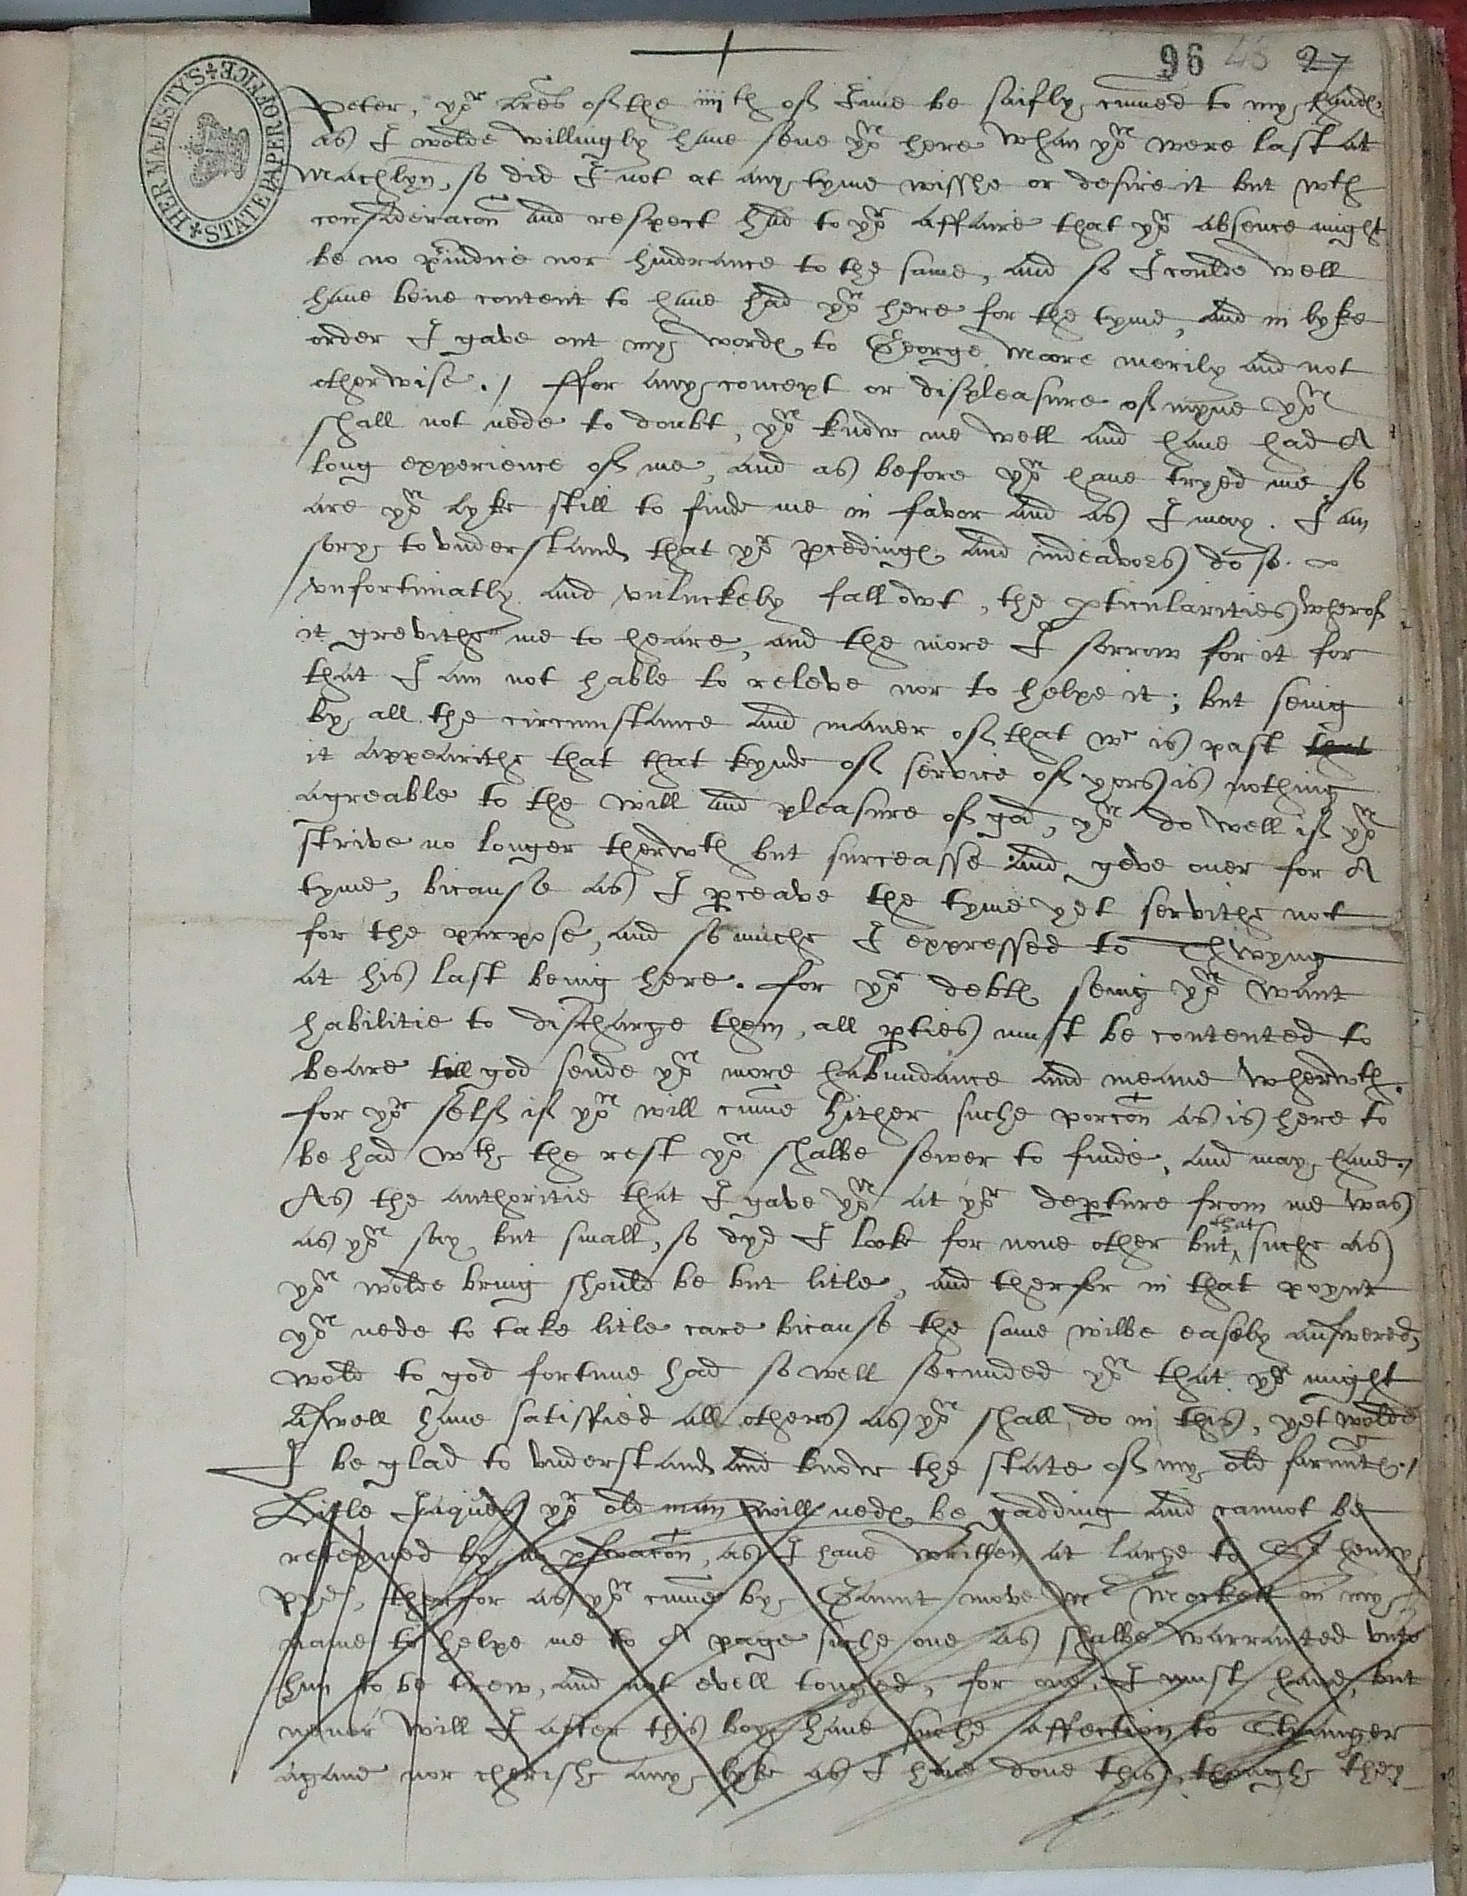 96 43 27
HER MAJESTY'S STATE PAPER OFFICE
Peter, yor lres of the iiiith of June be saifly cumed to my hand
as I wolde willingly have sene you here whan you were last at
Machlyn, so did I not at any tyme wisshe or desire it but wth
consideracon and respect had to yor affaire that yor absence might
be no preiudice nor hindrance to the same, and so I coulde well
have bene content to have had you here for the tyme, and in lyke
order I gave out my words to George Moore merily and not
otherwise ./ ffor any concept or displeasure of myne you
shall not nede to doubt, you know me well and have had A
long experience of me, and as before you have tryed me so
are you lyke still to finde me in favor and as I may. I am
sory to understand that yor pcedings and indeavors do so
unfortunatly and unluckely fall owt, the pticularities wherof
it grevithe me to heare, and the more I sorrow for it for
that I am not hable to releve nor to helpe it; but seing
by all the circumstance and maner of that wc is past that
it appearithe that that kynde of service of yors is nothing
agreable to the will and pleasure of god, you do well if you
strive no longer therwth but surceasse and geve over for A
tyme, bicause as I pceave the tyme yet servithe not
for the purpose, and so muche I expressed to Thwyng
at his last being here. for yor debts seing you want
habilitie to discharge them, all pties must be contented to
beare till god sende you more habundance and meane wherwth.
for yor self if you will cume hither suche porcon as is here to
be had wth the rest you shalbe sewer to finde, and may have./
As the authoritie that I gave you at yor depture from me was
as you say but small, so dyd I look for none other but that suche as
you wolde bring should be but litle, and therfor in that poynt
you nede to take litle care bicause the same wilbe easely answered,
wold to god fortune had so well secunded you that you might
aswell have satisfied all others as you shall do in this, yet wolde
I be glad to understand and know the state of my old servnts./
Litle Jaques yor old man will neds be gadding and cannot be
reteyned by no pswacon, as I have written at large to Sr henry
therfor as you cume by Gaunt move Mr Mockett in my
name to helpe me to A page suche one as shalbe warranted unto
him to be trew, and not evell tonged, for one I must have, but
never will I after this boy have suche affection to Stranger
agane nor cherishe any lyke as I have done this, thoughe they